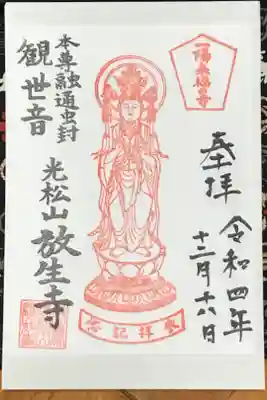 一陽来福の寺
奉拝
令和四年
十二月十八日
本尊融通虫封
観世音
光松山 放生寺
参拝記念